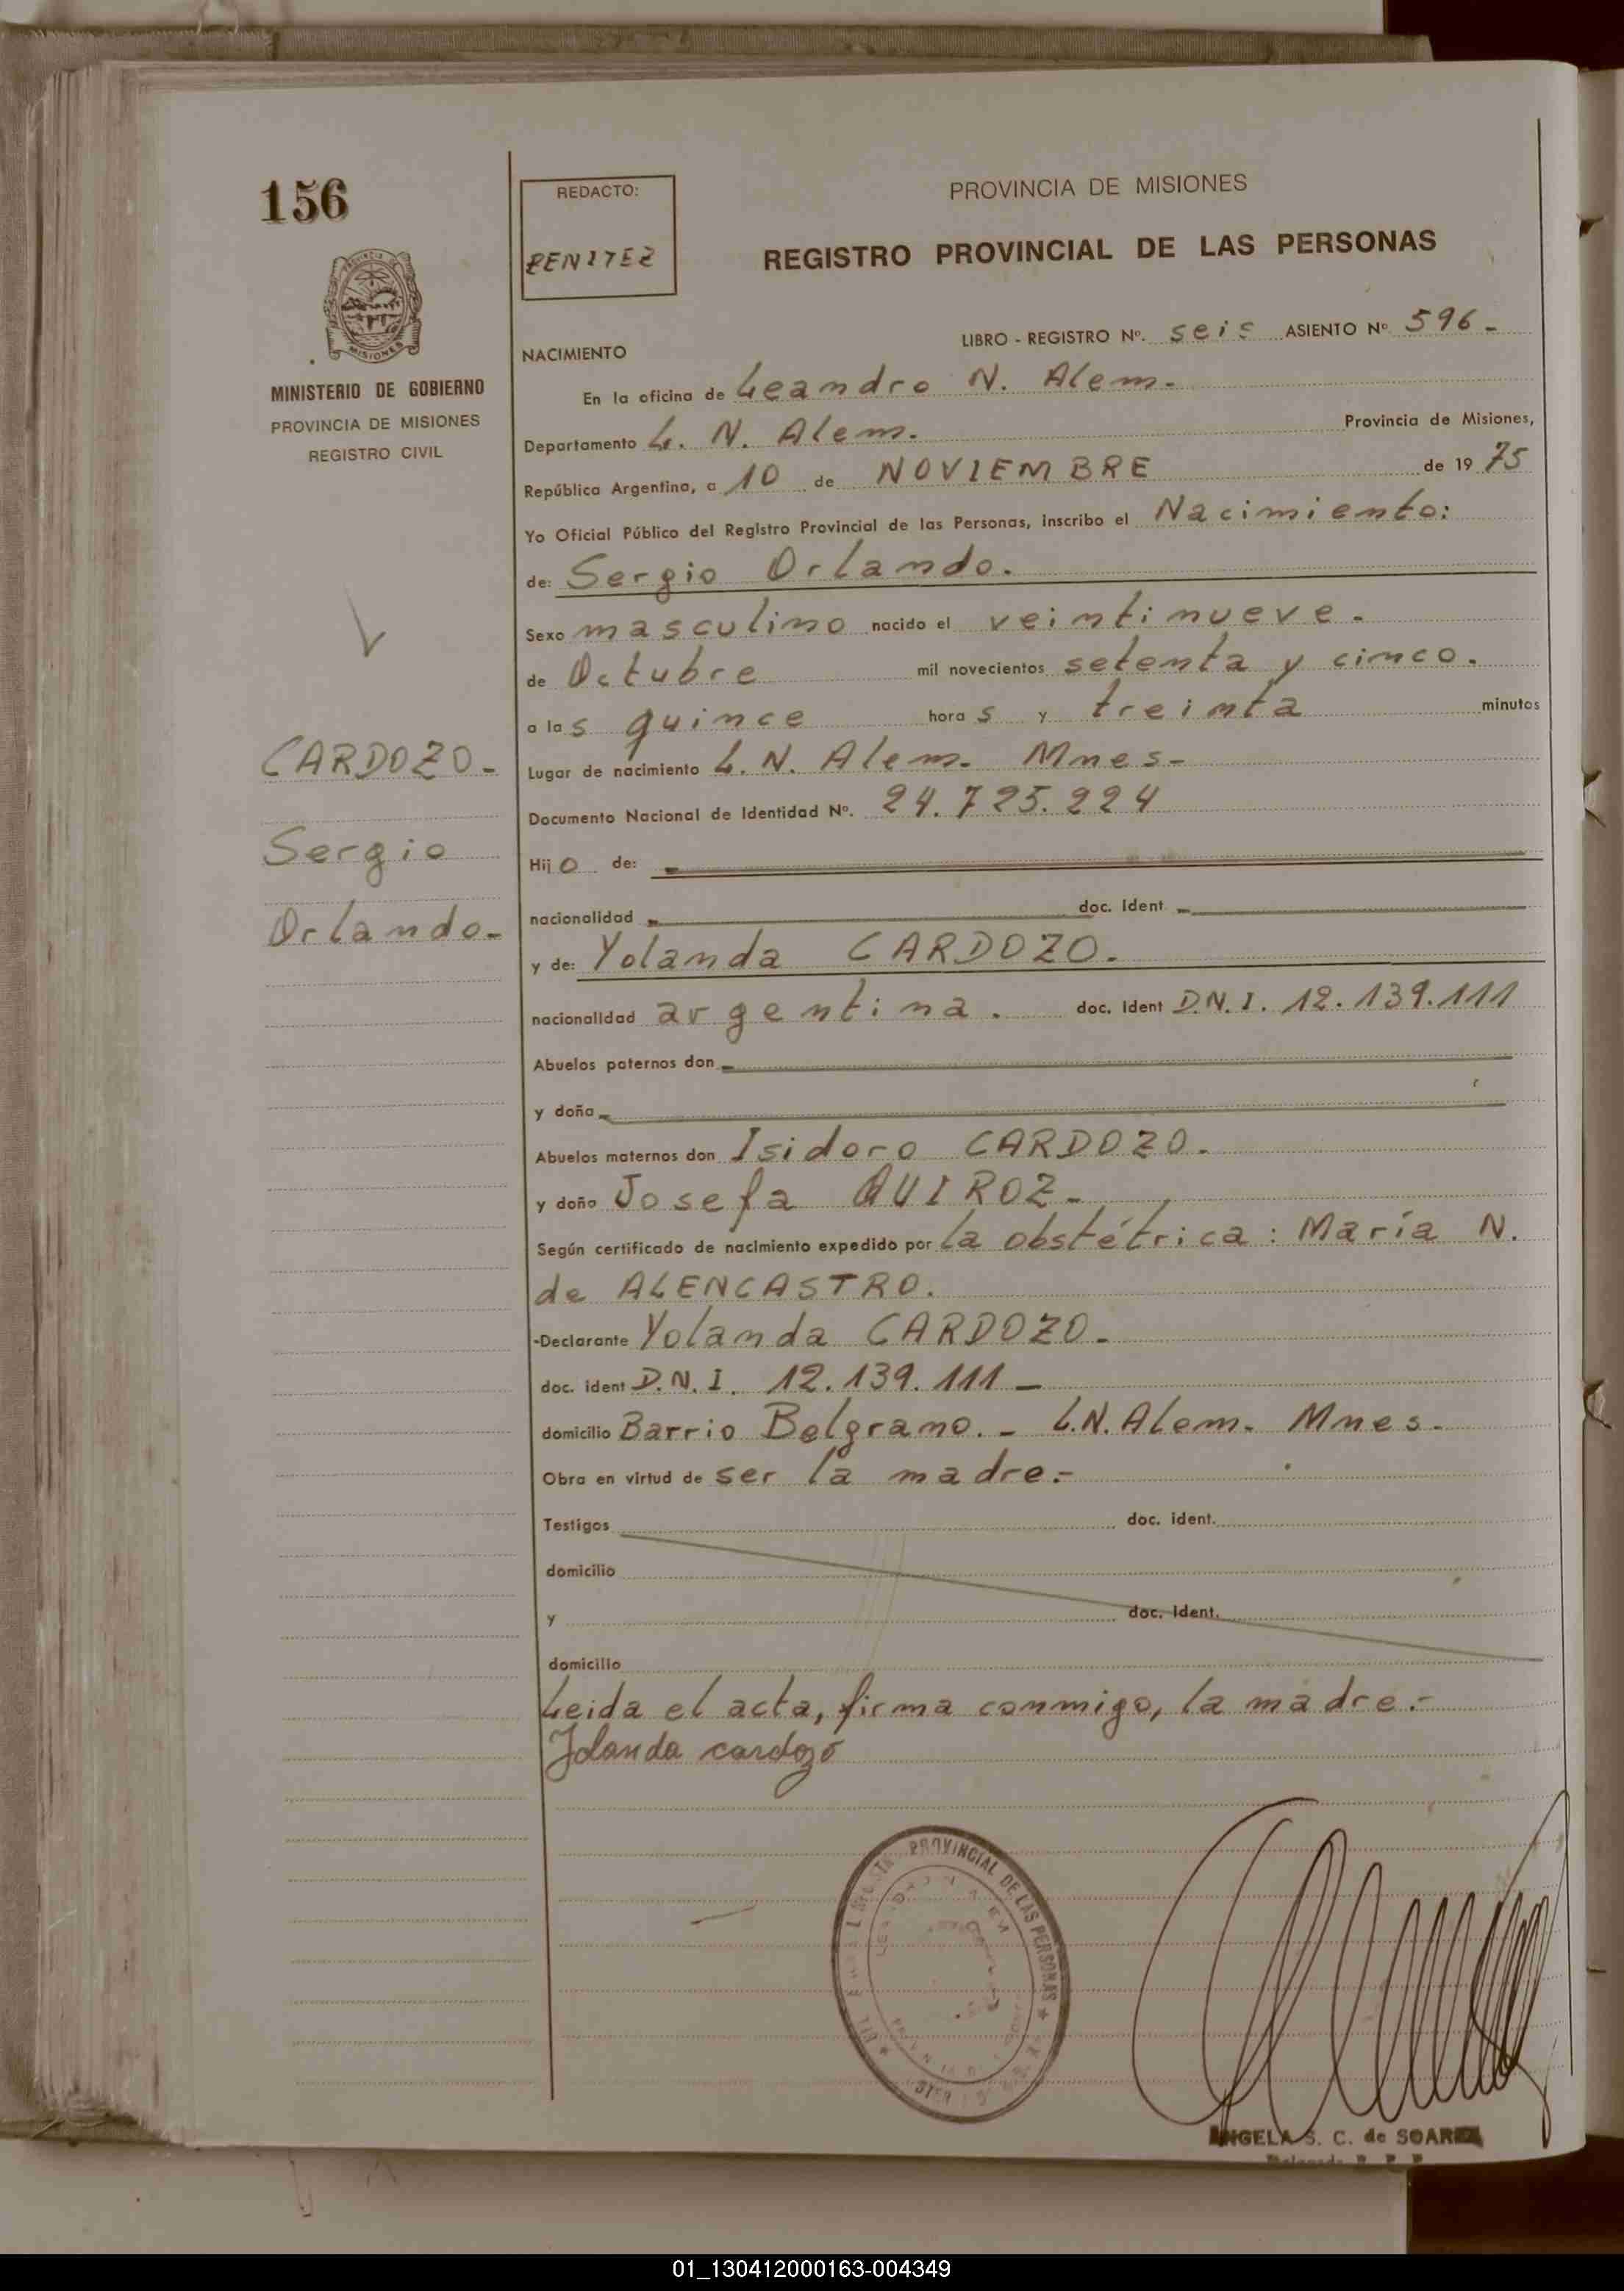 156
REDACTO:
BENITEZ
PROVINCIA DE MISIONES
REGISTRO PROVINCIAL DE LAS PERSONAS
MISIONES
MINISTERIO DE GOBIERNO
PROVINCIA DE MISIONES
REGISTRO CIVIL
LIBRO - REGISTRO Nº. seis ASIENTO Nº 596-
NACIMIENTO
En la oficina de Leandro N. Alem.
Departamento L. N. Alem. Provincia de Misiones,
República Argentina, a 10 de NOVIEMBRE de 19 75
Yo Oficial Público del Registro Provincial de las Personas, inscribo el Nacimiento:
de: Sergio Orlando.
Sexo masculino nacido el veintinueve.
de Octubre mil novecientos setenta y cinco.
a las quince horas y treinta minutos
CARDOZO-
Sergio
Orlando-
Lugar de nacimiento L. N. Alem. Mnes-
Documento Nacional de Identidad Nº. 24.725.224
Hijo de:
nacionalidad doc. Ident
y de: Yolanda CARDOZO.
nacionalidad argentina. doc. Ident D.N.I. 12.139.111
Abuelos paternos don
y doña
Abuelos maternos don Isidoro CARDOZO.
y doña Josefa QUIROZ-
Según certificado de nacimiento expedido por la obstétrica: María N.
de ALENCASTRO.
-Declarante Yolanda CARDOZO-
doc. ident D.N.I. 12.139.111-
domicilio Barrio Belgrano.- L.N.Alem. Mnes-
Obra en virtud de ser la madre.-
Testigos doc. ident.
domicilio
y doc. Ident.
domicilio
Leida el acta, firma conmigo, la madre.-
Jolanda cardozo
PROVINCIAL DE LAS PERSONAS
ANGELA S. C. de SOAREZ
01_130412000163-004349